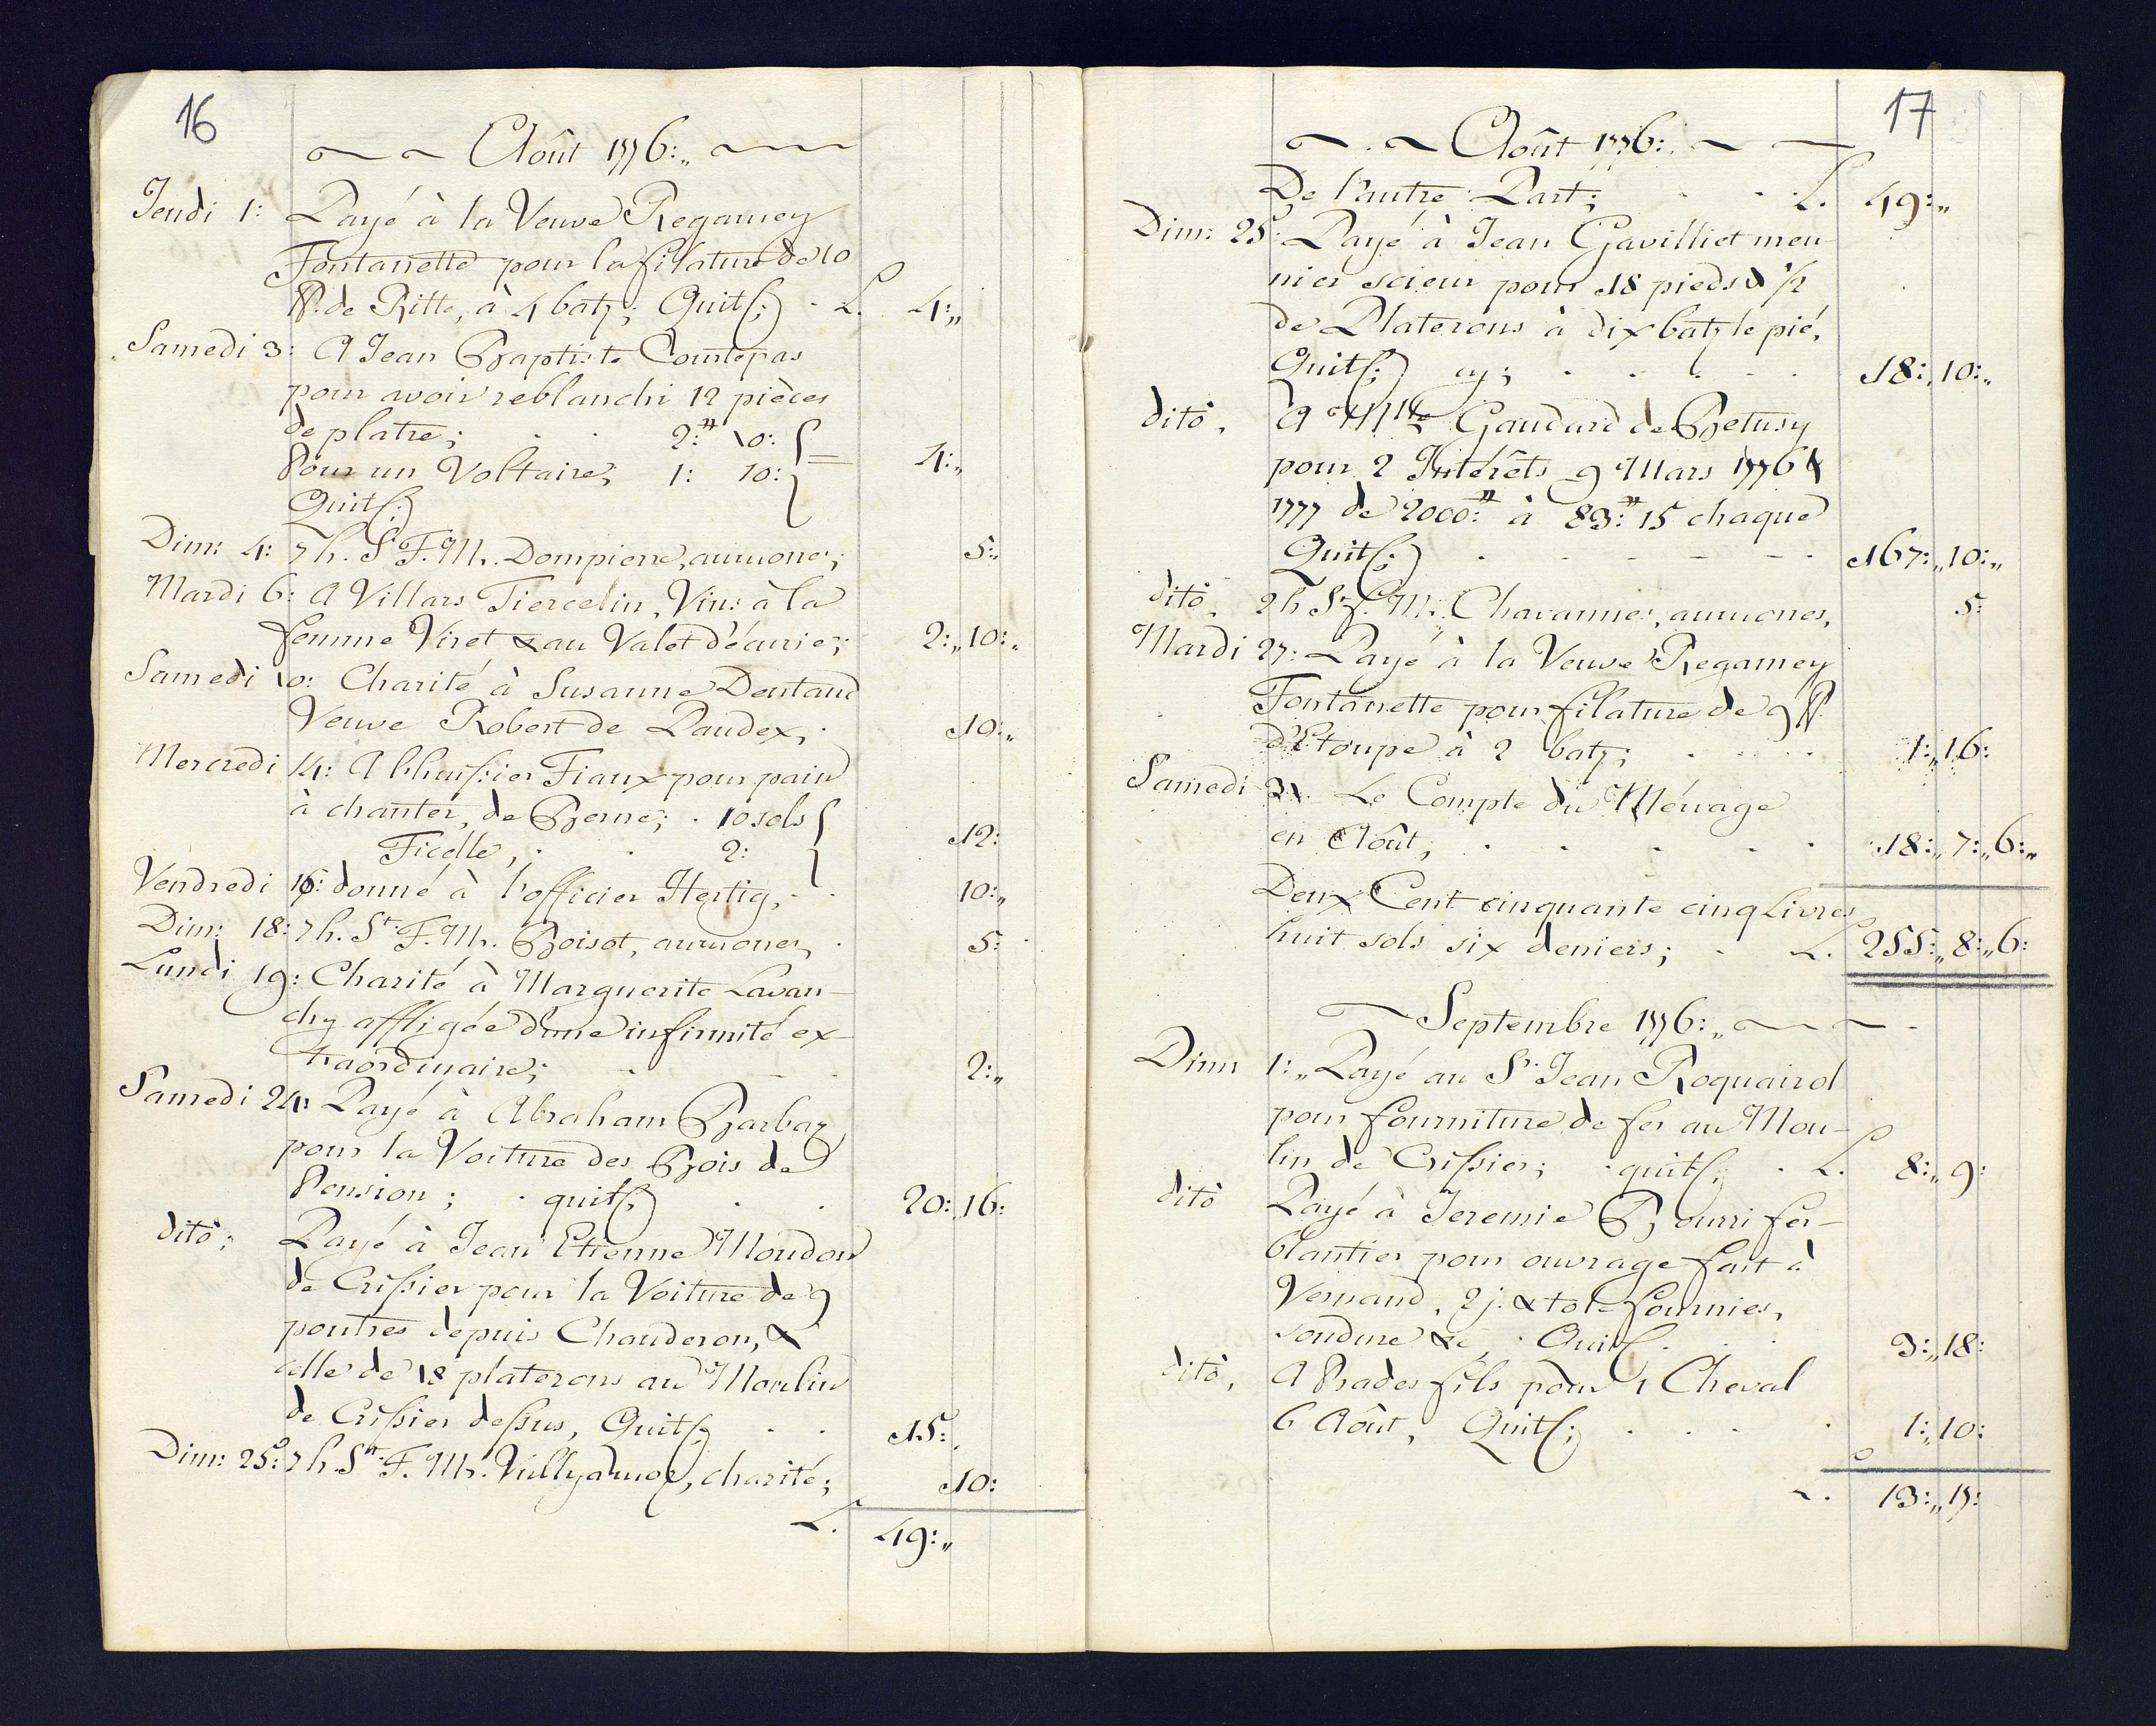 16
Août 1776:„
Jeudi 1: Payé à la Veuve Regamey
Fontanette pour la filature de 10
lb. de Ritte, à 4 batz; Quitc;) . L. 4:„
Samedi 3: A Jean Baptiste Comtepas
pour avoir reblanchi 12 pièces
de platre; . . 2:tt 10:
Pour un Voltaire; 1: 10: } = 4:„
Quitc;)
Dim: 4: 7 h. St F. Mr. Dompierre, aumones; 5:„
Mardi 6: A Villars Tiercelin, Vins à la
femme Viret & au Valet d'écurie; 2:„ 10:„
Samedi 10: Charité à Susanne Dentand
Veuve Robert de Paudex, . 10:„
Mercredi 14: A l'huissier Fiaux pour pain
à chanter, de Berne; . 10 sols
Ficelle, . . 2: } 12:
Vendredi 16: donné à l'officier Hertig, . . 10:„
Dim: 18: 7 h. St. F. Mr. Boisot, aumones, . 5:
Lundi 19: Charité à Marguerite Lavan-
chy affligée d'une infirmité ex-
traordinaire; . . . 2:„
Samedi 24: Payé à Abraham Barbaz
pour la Voiture des Bois de
Pension; . quitc;) . . 20:„ 16:
ditô; Payé à Jean Etienne Moudon
de Crissier pour la Voiture de 9
poutres depuis Chauderon, &
celle de 18 platerons au Moulin
de Crissier dessus, Quitc;) . . 15:„
Dim: 25: 7 h. St. F. Mr. Vullyamoz, charité; 10:
L. 49:„
17
Août 1776:
De l'autre Part; . . L. 49:„
Dim: 25: Payé à Jean Gavilliet meu-
nier scieur pour 18 pieds & 1/2
de Platerons à dix batz le pié,
Quitc;) cy; . . . . 18:„ 10:„
ditô, A Mlle Gaudard de Betusy
pour 2 Intérêts 9 Mars 1776 &
1777 de 2000:tt à 83:tt 15 chaque
Quitc;) . . . . . 167:„ 10:„
ditô, 2 h St f. Mr. Chavannes, aumones, 5:
Mardi 27: Payé à la Veuve Regamey
Fontanette pour filature de 9 lb.
d'Etoupe à 2 batz; . . . 1:„ 16:
Samedi 31. Le Compte du Ménage
en Août, . . . . . 18:„ 7:„ 6:„
Deux Cent cinquante cinq Livres
huit sols six deniers; . L. 255:„ 8:„ 6:
Septembre 1776:„
Dim 1:„ Payé au Sr. Jean Roquairol
pour fourniture de fer au Mou-
lin de Crissier; . quitc; . L. 8:„ 9:
ditô Payé à Jeremie Bourri fer-
blantier pour ouvrage fait à
Vernand, 2 j. & tole fournies,
soudure &c, . Quitc . . . 3:„ 18:
ditô, A Prades fils pour 1 Cheval
6 Août, Quitc;) . . . . 1:„ 10:
L. 13:„ 17: